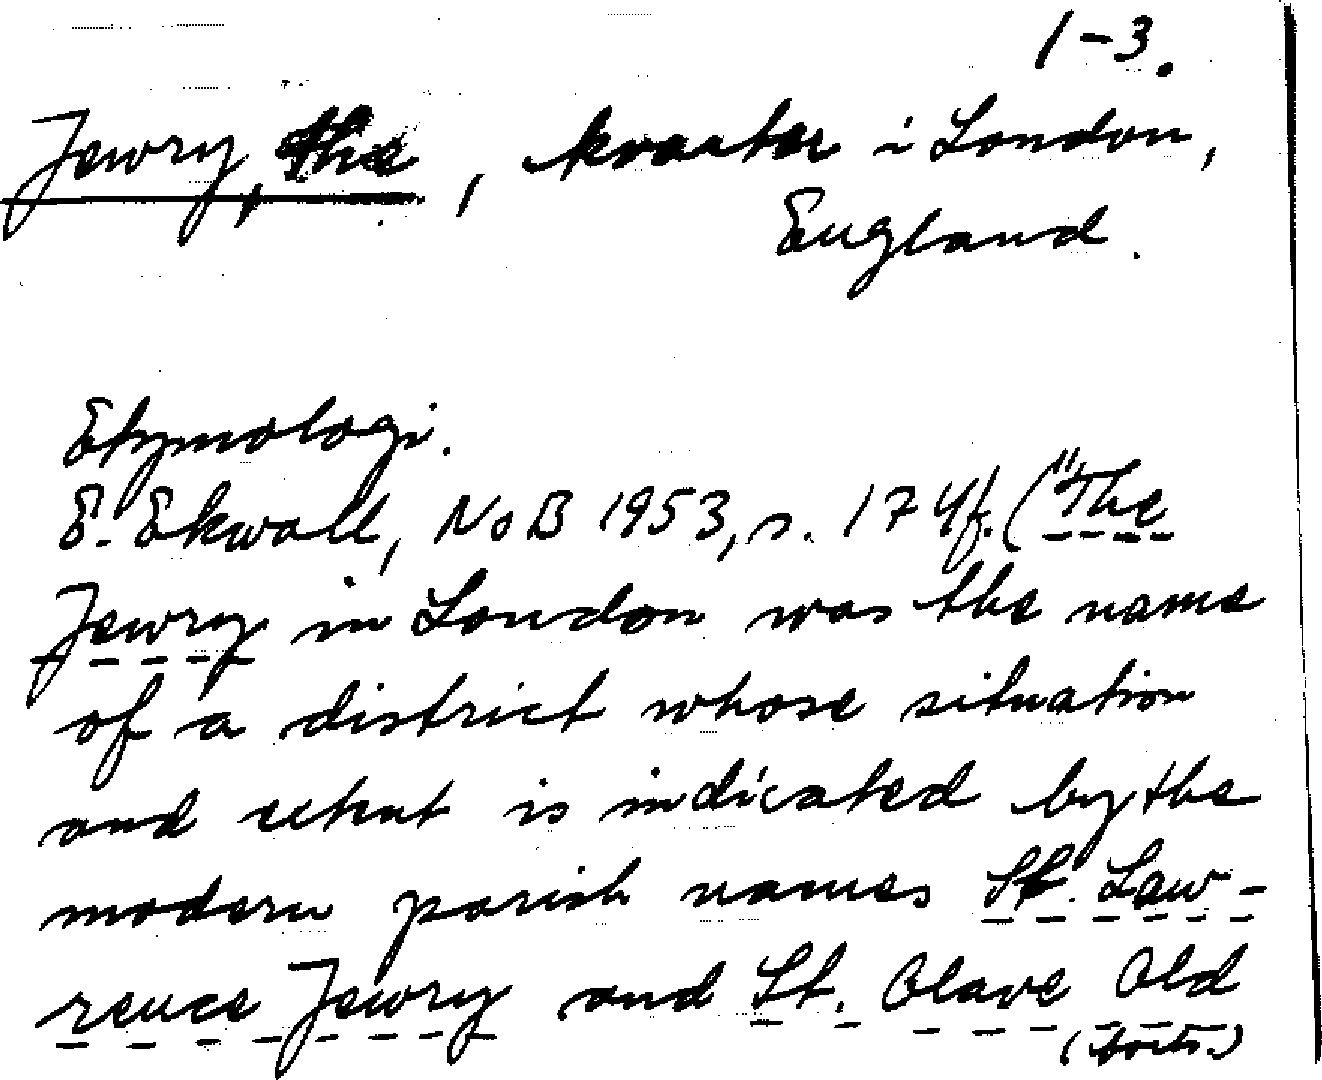 1-3.
Jewry, the, kvarter i London,
England.
Etymologi.
E. Ekwall, NoB 1953, s. 174f. ("The
Jewry in London was the name
of a district whose situation
and extent is indicated by the
modern parish names St. Law-
rence Jewry and St. Olave Old
(forts.)